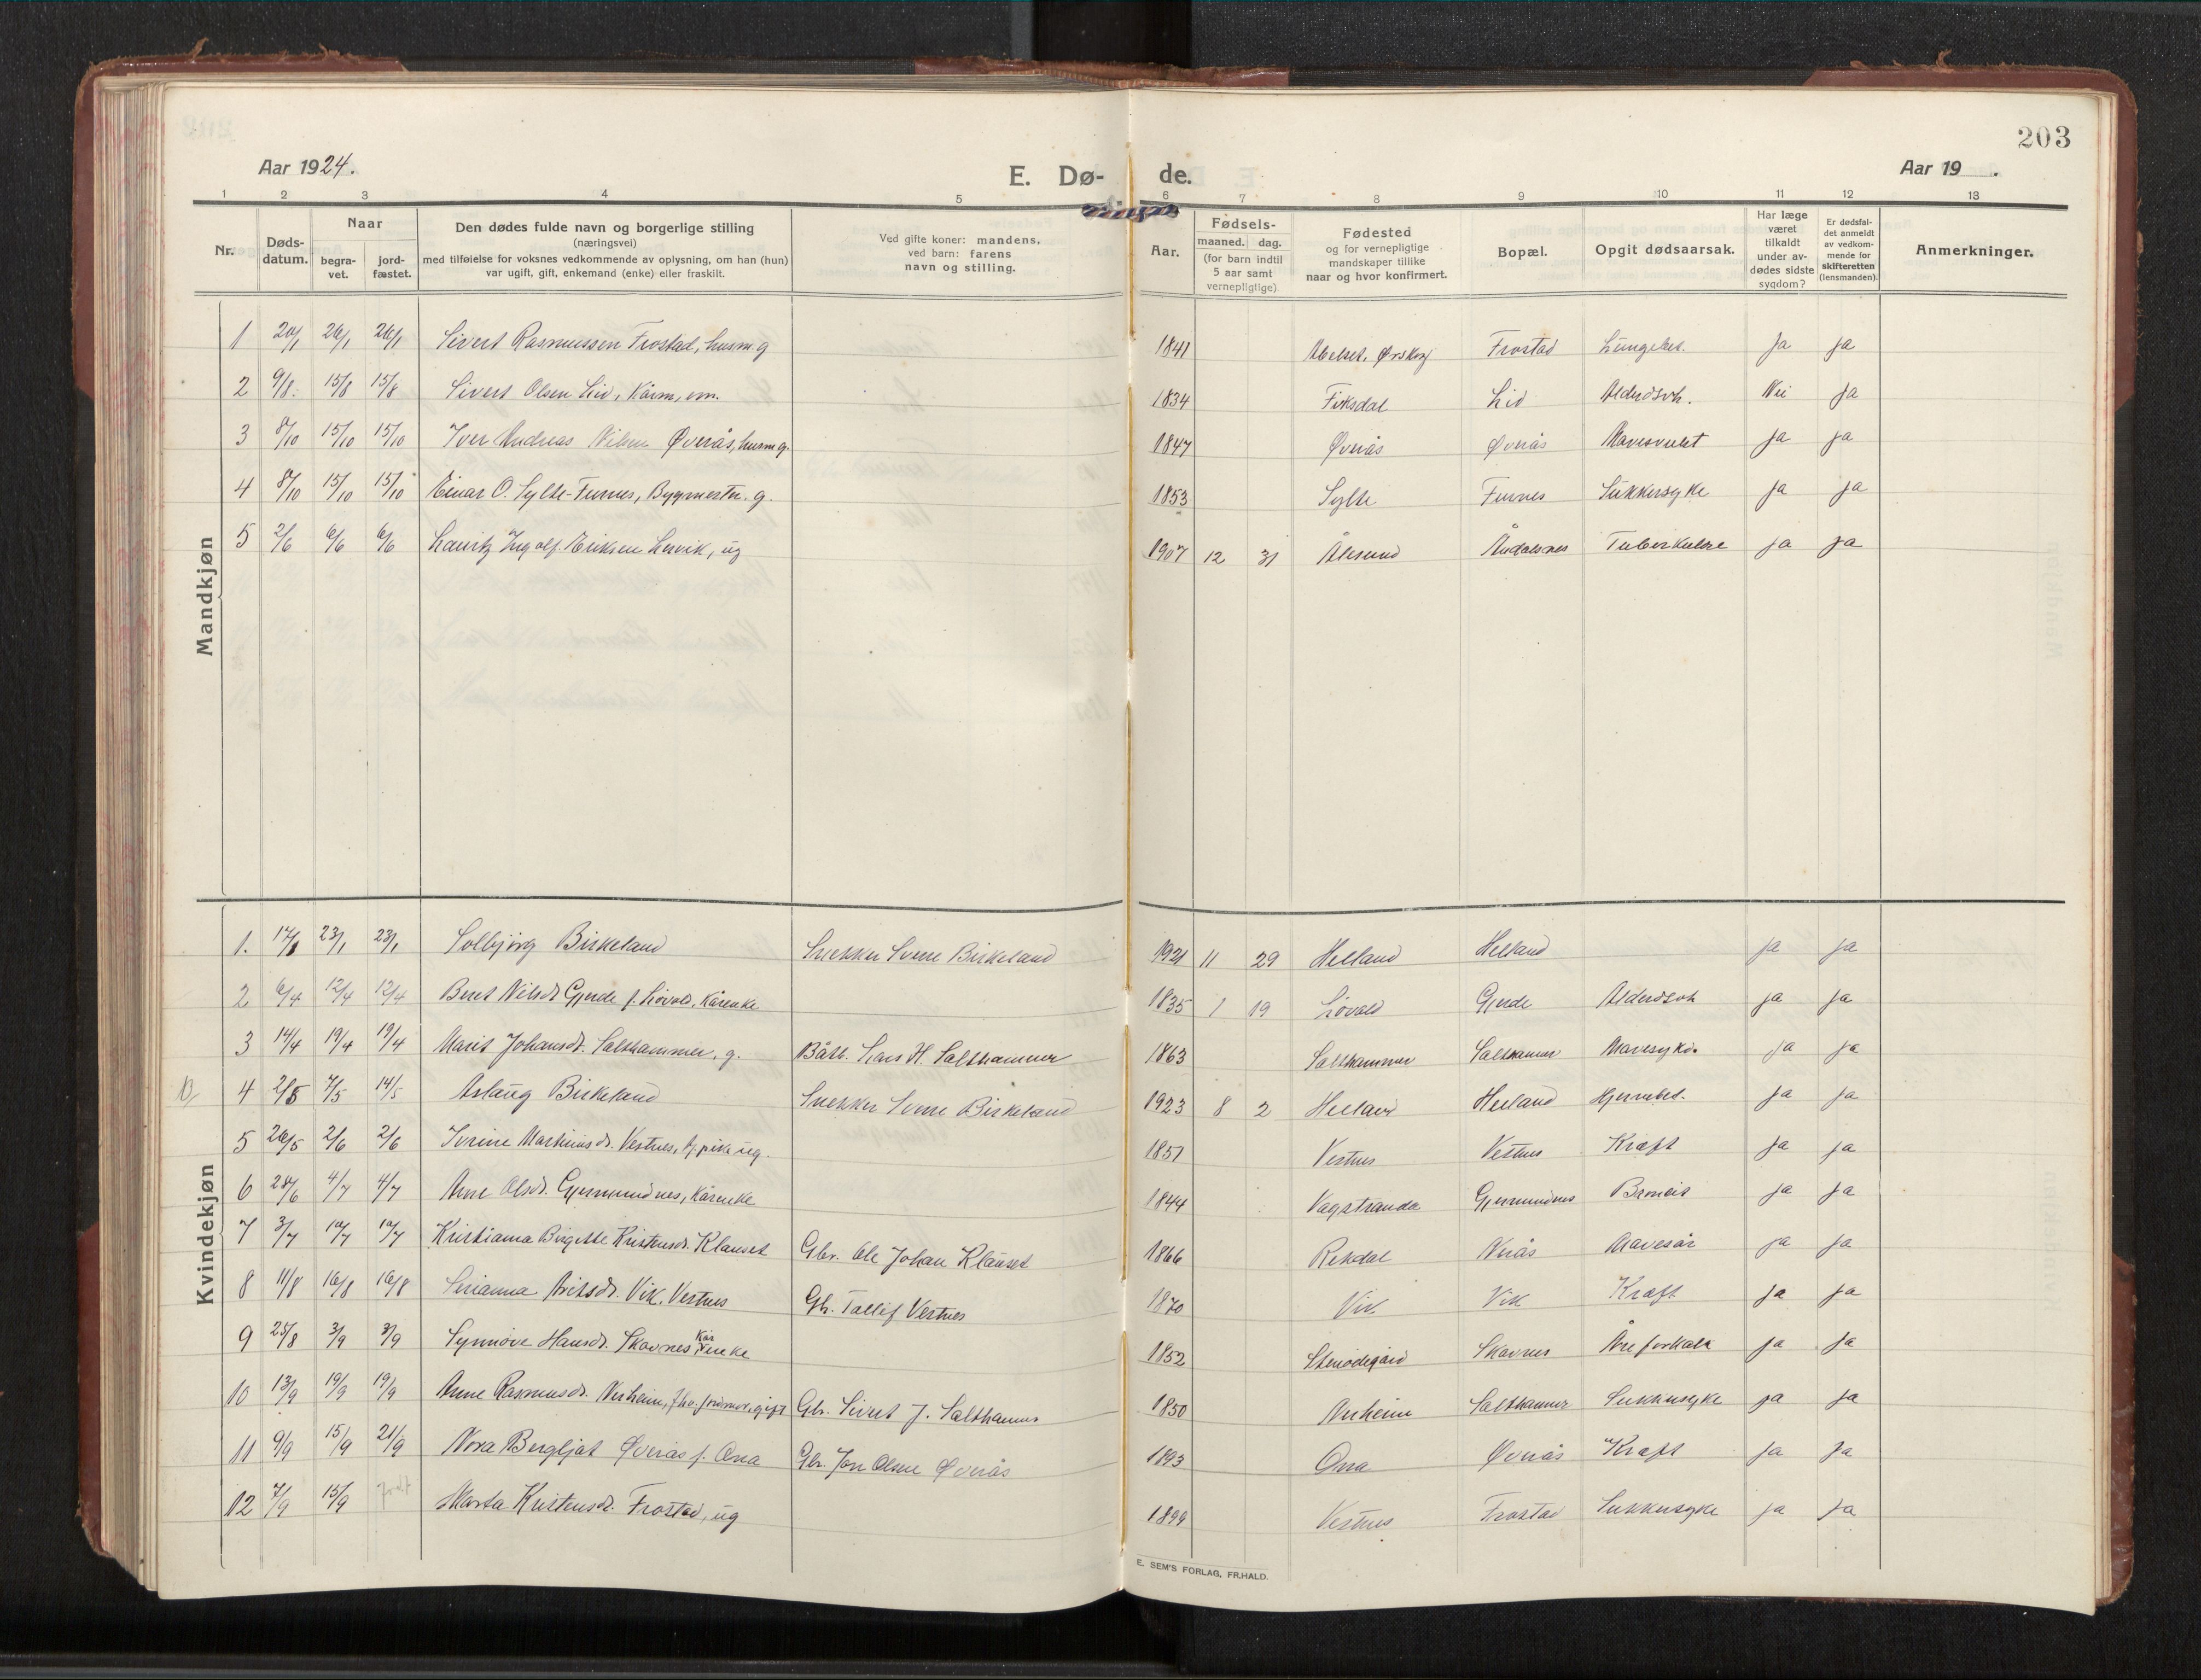 203
Aar 1924.
E. Dø-
de.
Aar 19 .
1 2 3 4 5 6 7 8 9 10 11 12 13
Nr.
Døds-
datum.
Naar
begra-
vet.
jord-
fæstet.
Den dødes fulde navn og borgerlige stilling
(næringsvei)
med tilføielse for voksnes vedkommende av oplysning, om han (hun)
var ugift, gift, enkemand (enke) eller fraskilt.
Ved gifte koner: mandens,
ved barn: farens
navn og stilling.
Aar.
Fødsels-
maaned. dag.
(for barn indtil
5 aar samt
vernepligtige).
Fødested
og for vernepligtige
mandskaper tillike
naar og hvor konfirmert.
Bopæl.
Opgit dødsaarsak.
Har læge
været
tilkaldt
under av-
dødes sidste
sygdom?
Er dødsfal-
det anmeldt
av vedkom-
mende for
skifteretten
(lensmanden).
Anmerkninger.
Mandkjøn
1 20/1 26/1 26/1 Sivert Rasmussen Frostad, husm. g 1841 Abelset, Ørskog Frostad Lungebet. Ja ja
2 9/8 15/8 15/8 Sivert Olsen Lid, Kårm, em. 1834 Fiksdal Lid Alderdsvh. Nei ja
3 8/10 15/10 15/10 Iver Andreas Nilsen Øverås, husm g. 1847 Øverås Øverås Mavesvulst ja ja
4 8/10 15/10 15/10 Einar O. Sylte-Furnes, Byggmester. g. 1853 Sylte Furnes Sukkersyke ja ja
5 2/6 6/6 6/6 Lauritz Ingolf Eriksen Lervik, ug 1907 12 31 Ålesund Åndalsnes Tuberkulose ja ja
Kvindekjøn
1. 17/1 23/1 23/1 Solbjörg Birkeland Snekker Sverre Birkeland 1921 11 29 Helland Helland ja ja
2 6/4 12/4 12/4 Beret Nilsdr Gjerde f. Lövold, Kårenke 1835 1 19 Lövold Gjerde Alderdsvh ja ja
3 14/4 19/4 19/4 Marit Johansdr. Salthammer, g. Båtb. Lars H. Salthammer 1863 Salthammer Salthamer Mavesykd. ja ja
4 2/5 7/5 14/5 Aslaug Birkeland Snekker Sverre Birkeland 1923 8 2 Helland Helland Hjernebet. ja ja
5 26/5 2/6 2/6 Iverine Martinusdr. Vestnes, tj. pike ug. 1851 Vestnes Vestnes Kræft ja ja
6 28/6 4/7 4/7 Anne Olsdr. Gjermundnes, Kårenke 1844 Vagstranda Gjermundnes Bronkit ja ja
7 3/7 10/7 10/7 Kristianna Birgitte Kristensdr. Klauset Gbr. Ole Johan Klauset 1866 Rekdal Nerås Mavesår ja ja
8 11/8 16/8 16/8 Serianna Vik, Vestnes Gb. Tollef Vestnes 1870 Vik Vik Kræft ja ja
9 25/8 3/9 3/9 Synnöve Hansdr. Skavnes Kårenke 1852 Skavnes Åreforkalk ja ja
10 13/9 19/9 19/9 Anne Rasmusdr. gift Gb. Sivert J. Salthammer 1850 Salthammer Sukkersyke ja ja
11 9/9 15/9 21/9 Nora Bergljot Øverås f. Ona Gb. Jon Olsen Øverås 1893 Ona Øverås Kræft ja ja
12 7/9 15/9 Marta Kristensdr. Frostad, ug 1899 Vestnes Frostad Sukkersyke ja ja
E. SEM'S FORLAG, FR.HALD.